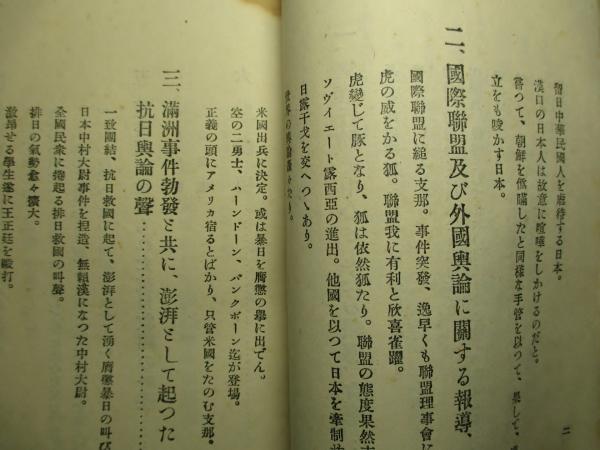 二
留日中華民國人を虐待する日本。
漢口の日本人は故意に喧嘩をしかけるのだと。
嘗つて、朝鮮を僞瞞したと同樣な手管を以つて、果して、
立をも唆かす日本。
二、國際聯盟及び外國輿論に關する報導、
國際聯盟に縋る支那。事件突發、逸早くも聯盟理事會に
虎の威をかる狐。聯盟我に有利と欣喜雀躍。
虎變じて豚となり、狐は依然狐たり。聯盟の態度果然
ソヴイエート露西亞の進出。他國を以つて日本を牽制
日露干戈を交へつゝあり。
世界の輿論
米國出兵に決定。或は暴日を膺懲の擧に出でん。
空の二勇士、ハーンドーン、パンクボーン迄が登場。
正義の頭にアメリカ宿るとばかり、只管米國をたのむ支那。
三、滿洲事件勃發と共に、澎湃として起つた
抗日輿論の聲…………
一致團結、抗日救國に起て、澎湃として湧く膺懲暴日の叫び
日本中村大尉事件を捏造、無賴漢になつた中村大尉。
全國民衆に捲起る排日救國の叫聲。
排日の氣勢愈々擴大。
激昻せる學生遂に王正廷を毆打。